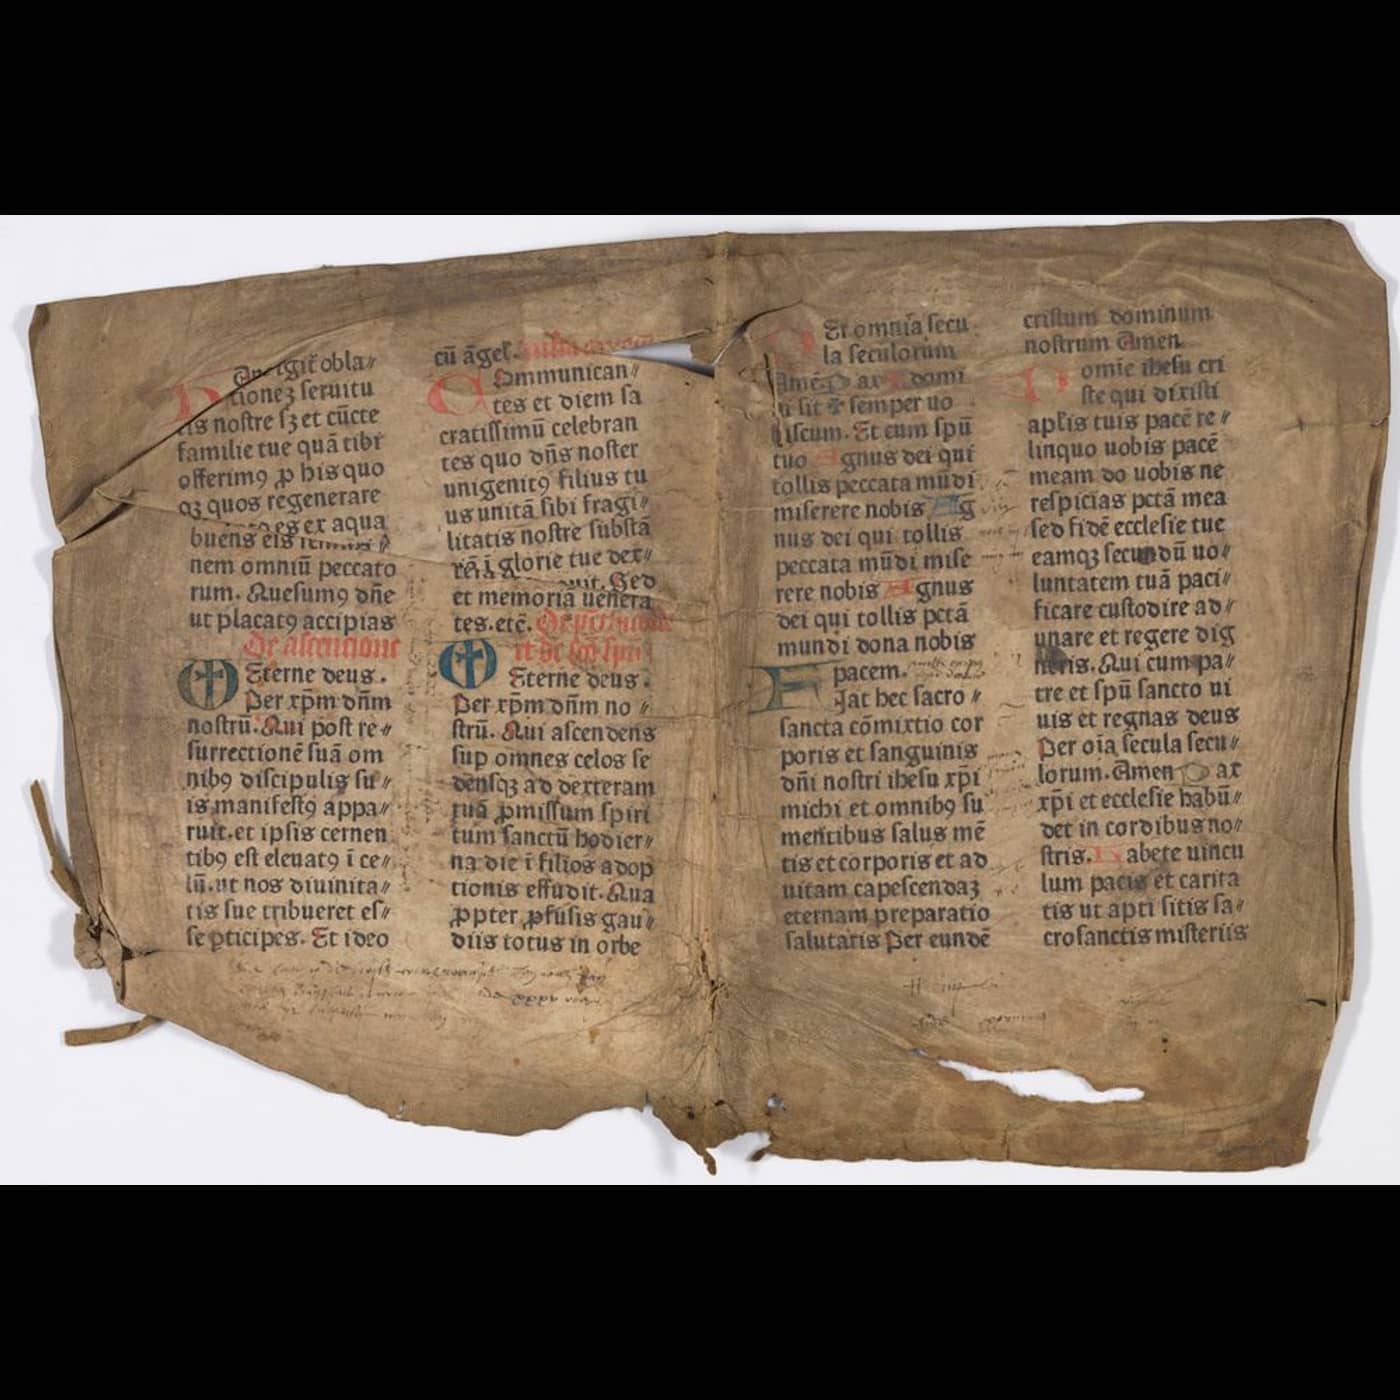 Anc igit̄ obla〃
tioneʒ seruitu
tis nostre sʒ et cūcte
familie tue quā tibi
offerimꝯ ꝓ his quo
qʒ quos regenerare
es ex aqua
buens eis
nem omniū peccato
rum. Quesumꝯ dn̄e
ut placatꝯ accipias
De ascencione
Eterne deus.
Per xp̄m dn̄m
nostrū. Qui post re〃
surrectionē suā om
nibꝯ discipulis su〃
is manifestꝯ appa〃
ruit. et ipsis cernen
tibꝯ est eleuatꝯ ī ce〃
lū. ut nos diuinita〃
tis sue tribueret es〃
se ꝑticipes. Et ideo
cū āgel̄.
Communican〃
tes et diem sa
cratissimū celebran
tes quo dn̄s noster
unigenitꝯ filius tu
us unitā sibi fragi〃
litatis nostre substā
glorie tue dex〃
uit. Sed
et memoriā uenera
tes. etc̄.
et de
Eterne deus.
Per xp̄m dn̄m no〃
strū. Qui ascendens
suꝑ omnes celos se
densqʒ ad dexteram
tuā ꝓmissum spiri
tum sanctū hodier〃
na die ī filios adop
tionis effudit. Qua
ꝓpter ꝓfusis gau〃
diis totus in orbe
Per omnia secu
la seculorum
Amē Pax domi
ni sit ✠ semper uo
biscum. Et cum sp̄u
tuo Agnus dei qui
tollis peccata mūdi
miserere nobis Ag
nus dei qui tollis
peccata mūdi mise
rere nobis Agnus
dei qui tollis pctā
mundi dona nobis
pacem.
Fiat hec sacro〃
sancta cōmixtio cor
poris et sanguinis
dn̄i nostri ihesu xp̄i
michi et omnibꝯ su
mentibus salus mē
tis et corporis et ad
uitam capescendaʒ
eternam preparatio
salutaris Per eundē
cristum dominum
nostrum Amen
Domie ihesu cri
ste qui dixisti
apl̄is tuis pacē re〃
linquo uobis pacē
meam do uobis ne
respicias pctā mea
sed fidē ecclesie tue
eamqʒ secundū uo〃
luntatem tuā paci〃
ficare custodire ad〃
unare et regere dig
neris. Qui cum pa〃
tre et sp̄u sancto ui
uis et regnas deus
Per oīa secula secu〃
lorum. Amen Pax
xp̄i et ecclesie habū〃
det in cordibus no〃
stris. Habete uincu
lum pacis et carita
tis ut apti sitis sa〃
crosanctis misteriis